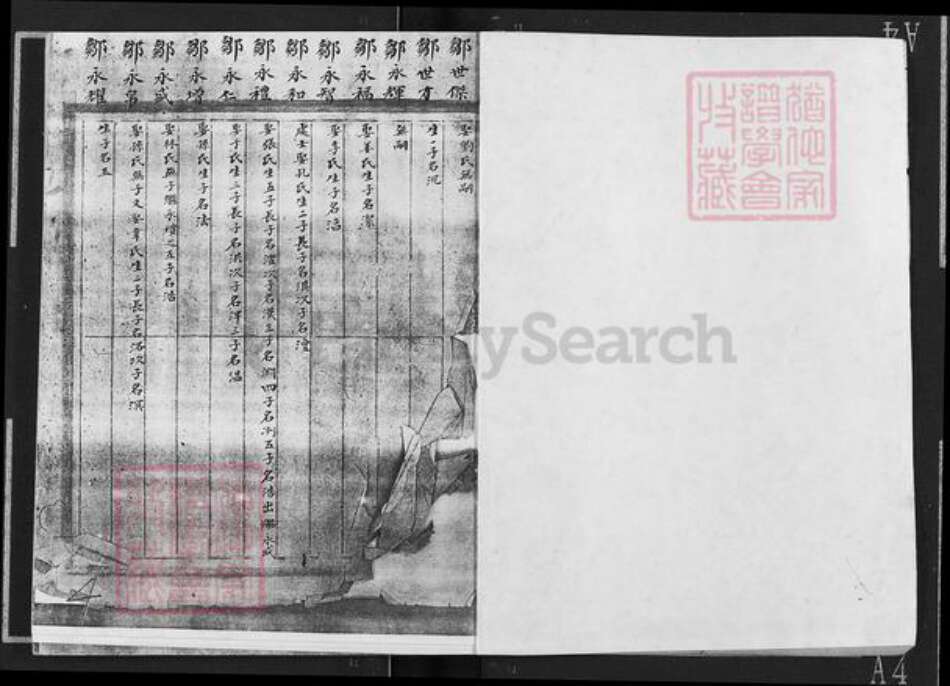 鄒世傑
娶劉氏無嗣
鄒世才
生一子名沉
鄒永輝
無嗣
鄒永福
娶姜氏生子名潔
鄒永智
娶李氏生子名浩
鄒永和
處士娶孔氏生二子長子名淇次子名澶
鄒永禮
娶張氏生五子長子名澧次子名漢三子名淵四子名洌五子名浩出繼永盛
鄒永仁
娶于氏生三子長子名洪次子名澤三子名温
鄒永增
娶孫氏生子名法
鄒永盛
娶林氏無子繼永禮之五子名浩
鄒永常
娶孫氏無子又娶韋氏生二子長子名洛次子名淇
鄒永耀
生子名玉
猶他家譜學會收藏
FamilySearch
A4
A4